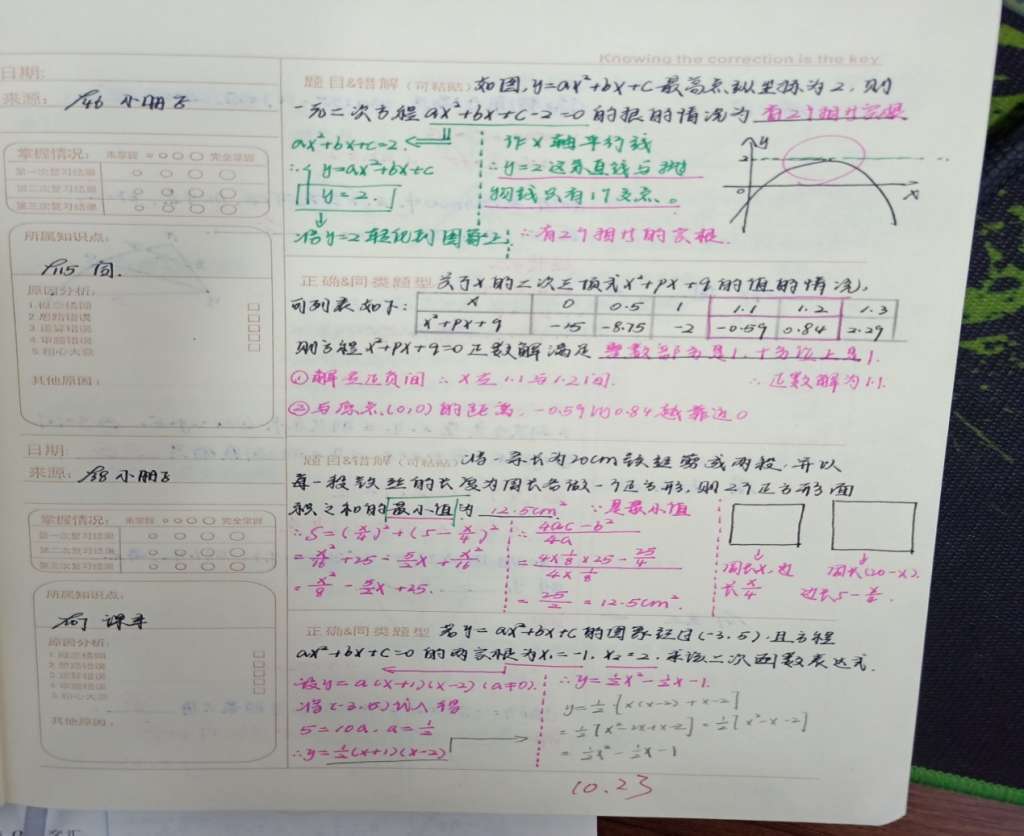 Knowing the correction is the key
日期:
来源: P46 小册子
题目&错解(可粘贴) 如图, y=ax²+bx+c最高点纵坐标为2, 则
一元二次方程ax²+bx+c-2=0的根的情况为 有2个相等实根
掌握情况: 未掌握 完全掌握
第一次复习结果
第二次复习结果
第三次复习结果
ax²+bx+c=2
∴ y=ax²+bx+c
y=2.
将y=2转化到图每上
作x轴平行线
∴y=2这条直线与抛
物线只有1个交点。
∴有2个相等的实根.
y
2
0
x
所属知识点:
P115 问.
原因分析:
1.概念错误
2.思路错误
3.运算错误
4.审题错误
5.粗心大意
其他原因:
正确&同类题型 关于x的二次三项式x²+px+q的值的情况,
可列表如下:
x 0 0.5 1 1.1 1.2 1.3
x²+px+q -15 -8.75 -2 -0.59 0.84 2.29
则方程x²+px+q=0正数解满足 整数部分是1, 十分位上是1.
①解是正负间 ∴x在1.1与1.2间. ∴正数解为1.1.
②与原点(0,0)的距离, -0.59比0.84越靠近0
日期:
来源: P58 小册子
题目&错解(可粘贴) 将一条长为20cm铁丝剪成两段, 并以
每一段铁丝的长度为周长各做一个正方形, 则2个正方形面
积之和的最小值为 12.5cm² ∵是最小值
掌握情况: 未掌握 完全掌握
第一次复习结果
第二次复习结果
第三次复习结果
∴S=(x/4)²+(5-x/4)²
=x²/16+25-5/2x+x²/16
=x²/8-5/2x+25.
∴ 4ac-b²/4a
=4×1/8×25-25/4 / 4×1/8
=25/2=12.5cm².
周长x, 边
长x/4
周长(20-x).
边长5-x/4.
所属知识点:
原因分析:
1.概念错误
2.思路错误
3.运算错误
4.审题错误
5.粗心大意
其他原因:
正确&同类题型 若y=ax²+bx+c的图象经过(-3,5), 且方程
ax²+bx+c=0的两实根为x₁=-1, x₂=2, 求该二次函数表达式.
设y=a(x+1)(x-2)(a≠0).
将(-3,5)代入得
5=10a, a=1/2
∴y=1/2(x+1)(x-2)
∴y=1/2x²-1/2x-1.
y=1/2·[x(x-2)+x-2]
=1/2[x²-2x+x-2]=1/2[x²-x-2]
=1/2x²-1/2x-1
10.23